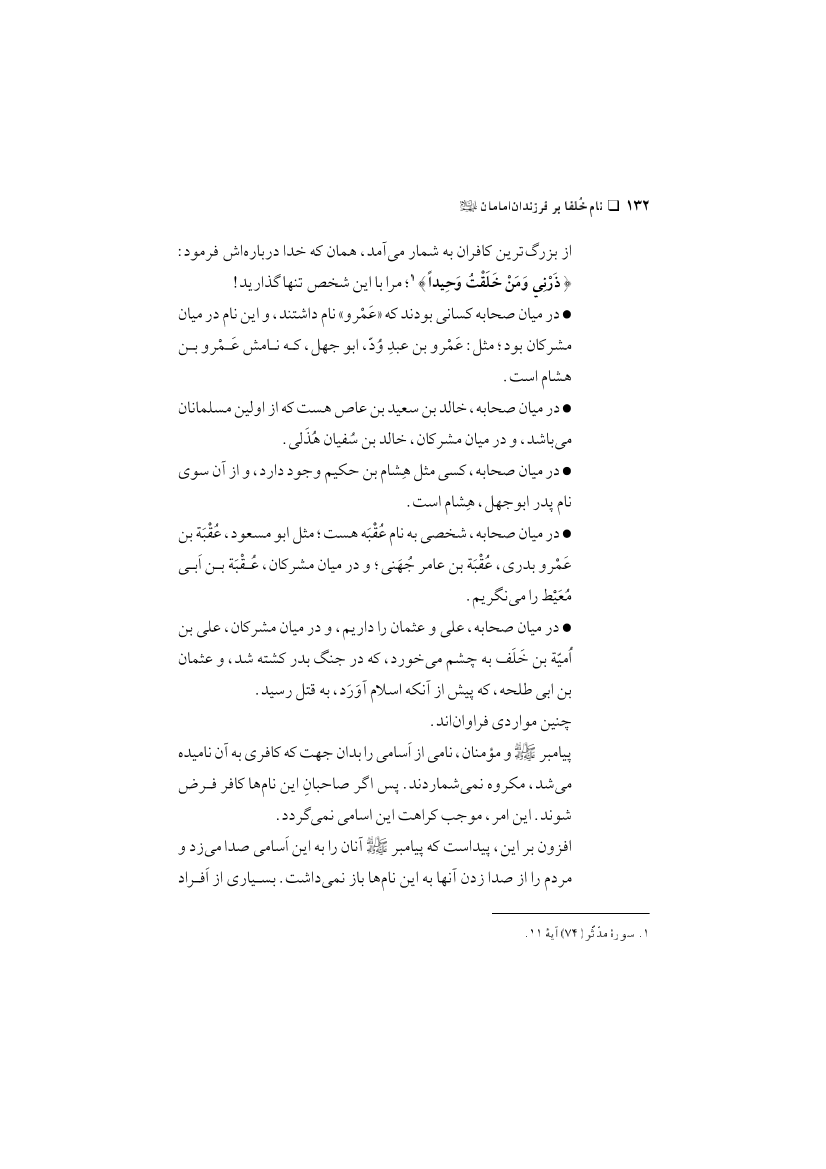 ۱۳۲ ❑ نام خُلفا بر فرزندان امامان ﷺ
از بزرگ‌ترین کافران به شمار می‌آمد، همان که خدا درباره‌اش فرمود:
﴿ ذَرْنِي وَمَنْ خَلَقْتُ وَحِيداً ﴾۱؛ مرا با این شخص تنها گذارید!
● در میان صحابه کسانی بودند که «عَمْرو» نام داشتند، و این نام در میان
مشرکان بود؛ مثل: عَمْرو بن عبدِ وُدّ، ابو جهل، کـه نـامش عَـمْرو بـن
هشام است.
● در میان صحابه، خالد بن سعید بن عاص هست که از اولین مسلمانان
می‌باشد، و در میان مشرکان، خالد بن سُفیان هُذَلی.
● در میان صحابه، کسی مثل هِشام بن حکیم وجود دارد، و از آن سوی
نام پدر ابوجهل، هِشام است.
● در میان صحابه، شخصی به نام عُقْبَه هست؛ مثل ابو مسعود، عُقْبَة بن
عَمْرو بدری، عُقْبَة بن عامر جُهَنی؛ و در میان مشرکان، عُـقْبَة بـن اَبـی
مُعَیْط را می‌نگریم.
● در میان صحابه، علی و عثمان را داریم، و در میان مشرکان، علی بن
اُمیّة بن خَلَف به چشم می‌خورد، که در جنگ بدر کشته شد، و عثمان
بن ابی طلحه، که پیش از آنکه اسلام آوَرَد، به قتل رسید.
چنین مواردی فراوان‌اند.
پیامبر ﷺ و مؤمنان، نامی از اَسامی را بدان جهت که کافری به آن نامیده
می‌شد، مکروه نمی‌شماردند. پس اگر صاحبانِ این نام‌ها کافر فـرض
شوند. این امر، موجب کراهت این اسامی نمی‌گردد.
افزون بر این، پیداست که پیامبر ﷺ آنان را به این اَسامی صدا می‌زد و
مردم را از صدا زدن آنها به این نام‌ها باز نمی‌داشت. بسـیاری از اَفـراد
۱. سورهٔ مدّثّر (۷۴) آیهٔ ۱۱.